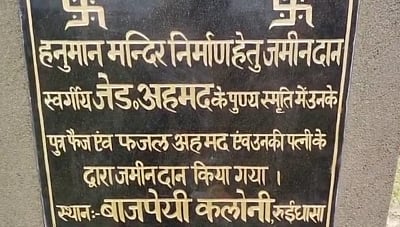 हनुमान मन्दिर निर्माण हेतु जमीन दान
स्वर्गीय जेड. अहमद के पुण्य स्मृति में उनके
पुत्र फैज एंव फजल अहमद एंव उनकी पत्नी के
द्वारा जमीन दान किया गया ।
स्थान:- बाजपेयी कलोनी, रुईधासा